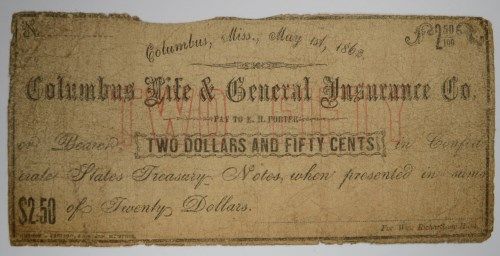 N
$2 50/100
Columbus, Miss., May 1st, 1862
Columbus Life & General Insurance Co.
TWO FIFTY
PAY TO E. H. PORTER
or Bearer TWO DOLLARS AND FIFTY CENTS in Confed
erate States Treasury Notes, when presented in sums
$2.50 of Twenty Dollars.
For